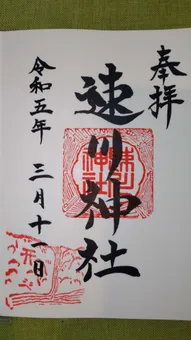 奉拝
速川神社
令和五年 三月十一日